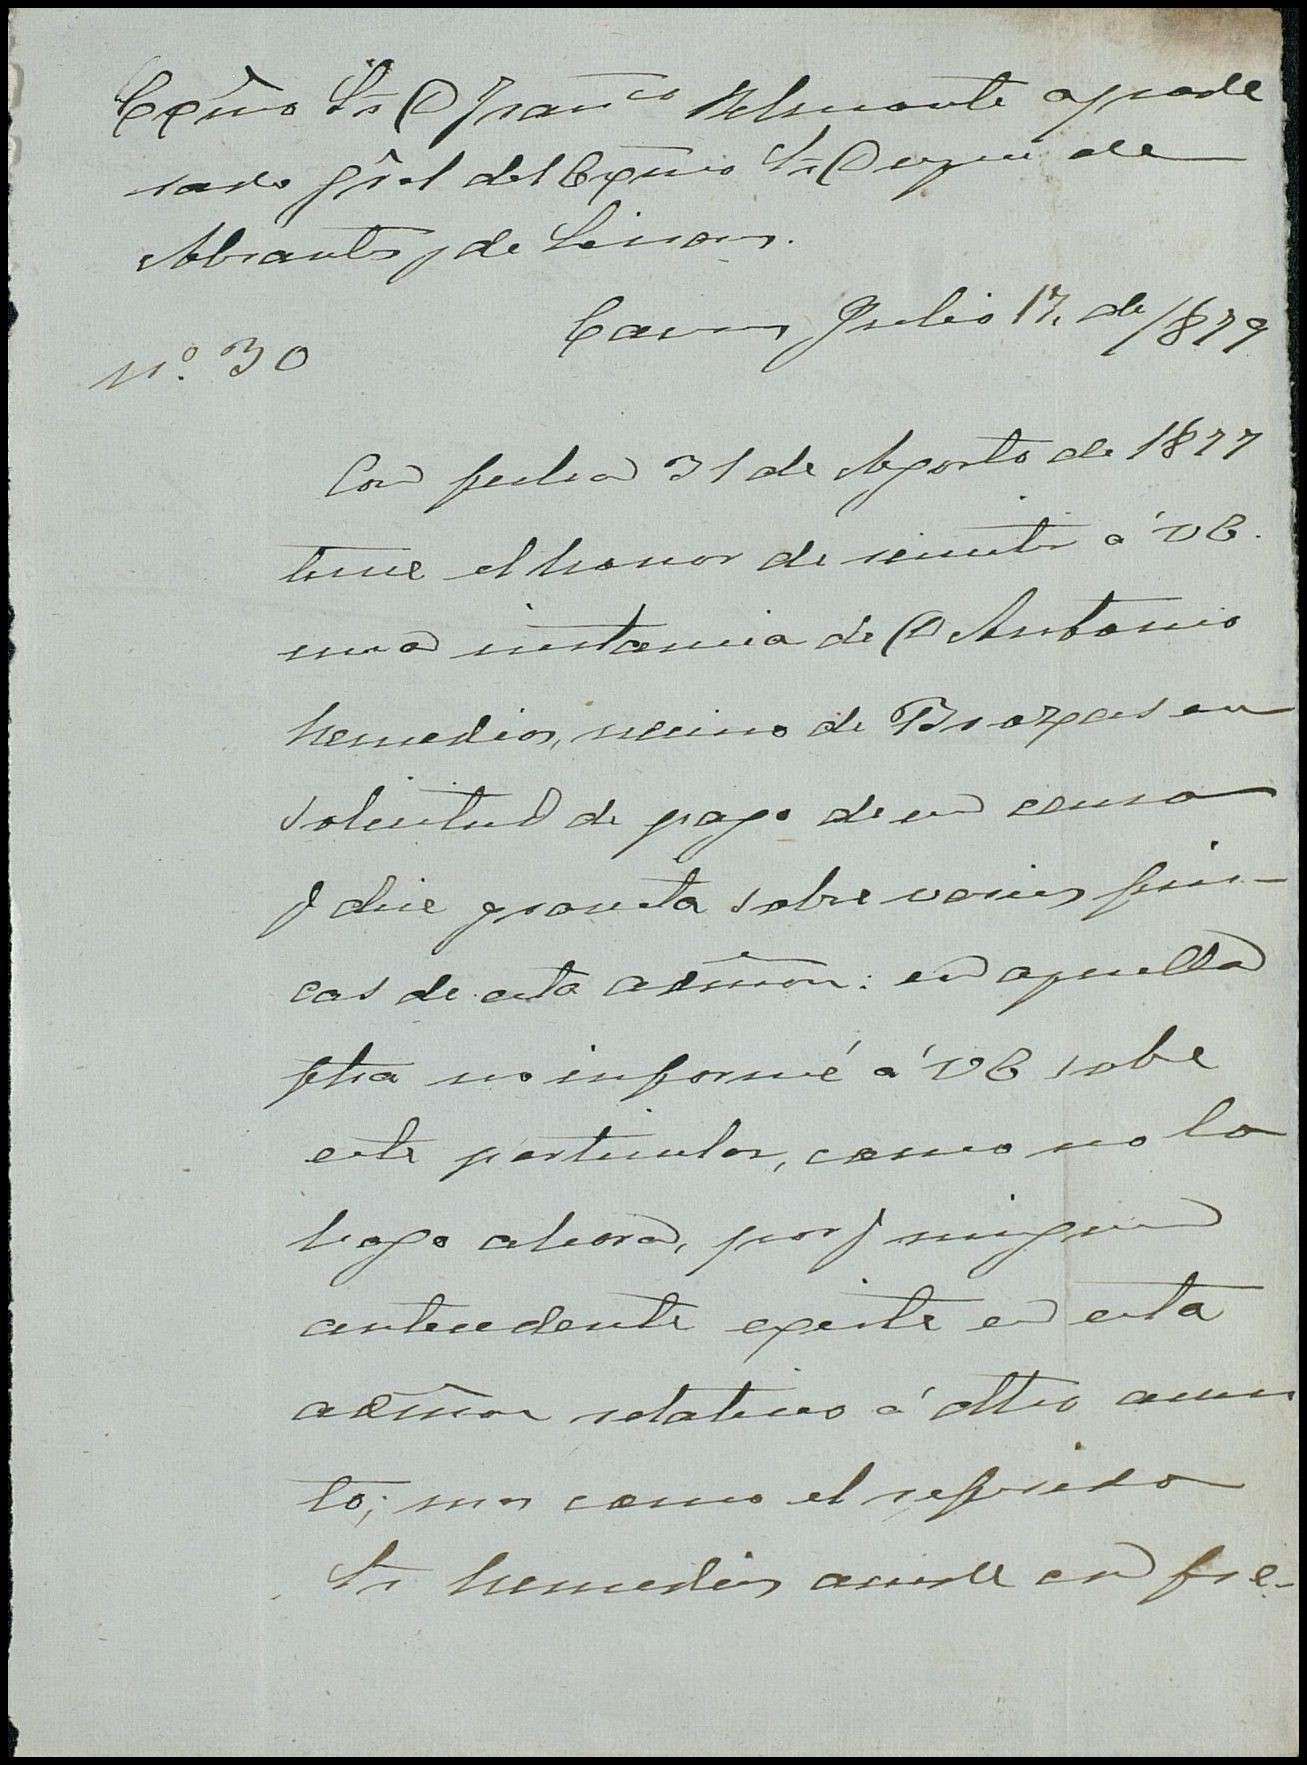 Exc̃mo Sr D Fran.co Belmonte apode
rado gral del Exc̃mo Sr Duque de
Abrantes y de Linares.
Cacers Julio 17, de 1879
Nº. 30
Con fecha 31 de Agosto de 1877
tuve el honor de remitir á VE.
una instancia de D Antonio
Remedios, vecino de Brozas en
solicitud de pago de un censo
q dice gravita sobre varias fin-
cas de esta admon: en aquella
fha no informé á VE sobre
este particular, como no lo
hago ahora, porq ningun
antecedente existe en esta
admon relativo á dho asun
to; mas como el referido
Sr Remedios acude con fre-